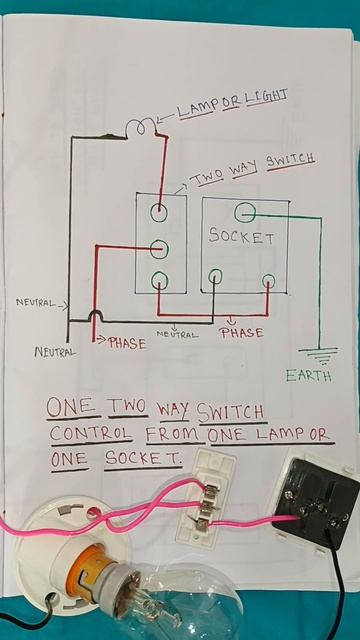 LAMP OR LIGHT
TWO WAY SWITCH
SOCKET
NEUTRAL
NEUTRAL
PHASE
NEUTRAL
PHASE
EARTH
ONE TWO WAY SWITCH
CONTROL FROM ONE LAMP OR
ONE SOCKET.